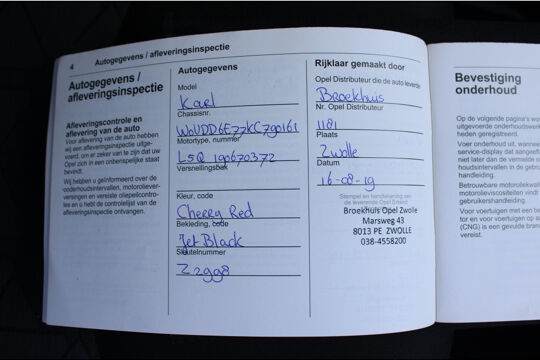 4 Autogegevens / afleveringsinspectie
Autogegevens /
afleveringsinspectie
Afleveringscontrole en
aflevering van de auto
Voor aflevering van de auto hebben
wij een afleveringsinspectie uitge-
voerd, om er zeker van te zijn dat uw
Opel zich in een onberispelijke staat
bevindt.
Wij hebben u geïnformeerd over de
onderhoudsintervallen, motoroliever-
versingen en vereiste oliepeilcontro-
les en u hebt de controlelijst van de
afleveringsinspectie ontvangen.
Autogegevens
Model
Karl
Chassisnr.
W0VDD6E77KC790161
Motortype, nummer
L5Q 190670372
Versnellingsbak
Kleur, code
Cherry Red
Bekleding, code
Jet Black
Sleutelnummer
Z2998
Rijklaar gemaakt door
Opel Distributeur die de auto leverde
Broekhuis
Nr. Opel Distributeur
1181
Plaats
Zwolle
Datum
16-08-19
Stempel en handtekening van
de leverende Opel Erkend
Broekhuis Opel Zwolle
Marsweg 43
8013 PE ZWOLLE
038-4558200
Bevestiging
onderhoud
Op de volgende pagina's wo
uitgevoerde onderhoudswerk
heden geregistreerd.
Voer onderhoud uit, wanneer
service-display dat aangeeft
niet later dan de vermelde o
houdsintervallen in de gebru
handleiding.
Betrouwbare motoroliekwali
motorolieviscositeiten vindt
gebruikershandleiding.
Voor voertuigen met een be
tor en voor voertuigen op aa
(CNG) is een gevulde bran
vereist.